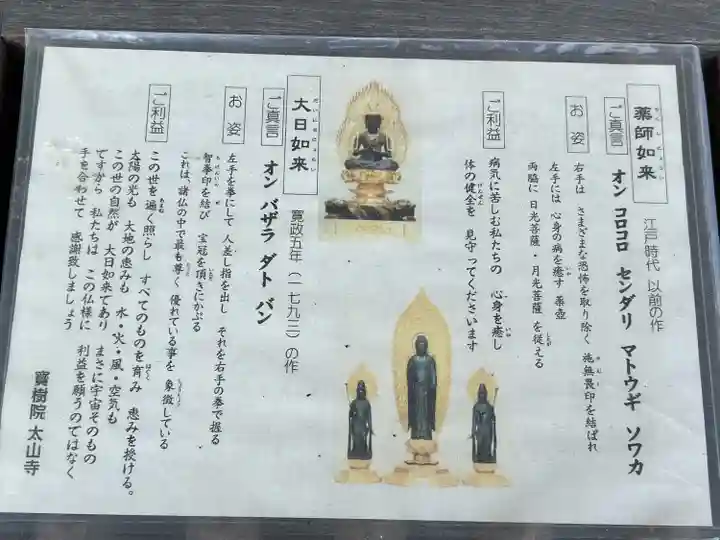 薬師如来
江戸時代 以前の作
ご真言
オン コロコロ センダリ マトウギ ソワカ
お姿
右手は さまざまな恐怖を取り除く 施無畏印を結ばれ
左手には 心身の病を癒す 薬壺
両脇に 日光菩薩・月光菩薩 を従える
ご利益
病気に苦しむ私たちの 心身を癒し
体の健全を 見守ってくださいます
大日如来
寛政五年(一七九三)の作
ご真言
オン バザラ ダト バン
お姿
左手を拳にして 人差し指を出し それを右手の拳で握る
智拳印を結び 宝冠を頂きにかぶる
これは、諸仏の中で最も尊く 優れている事を 象徴している
ご利益
この世を遍く照らし すべてのものを育み 恵みを授ける。
太陽の光も 大地の恵みも 水・火・風・空気も
この世の自然が 大日如来であり まさに宇宙そのもの
ですから 私たちは この仏様に 利益を願うのではなく
手を合わせて 感謝致しましょう
寳樹院 太山寺